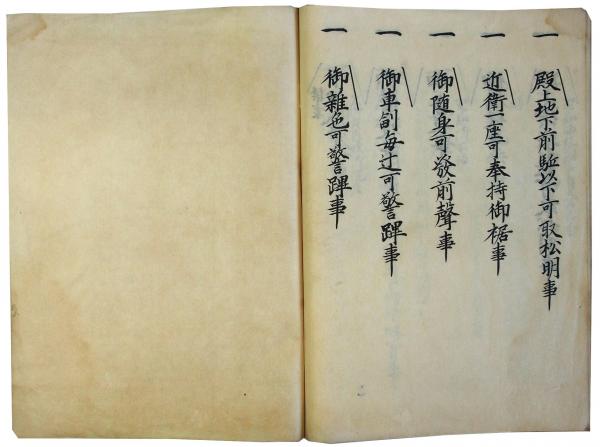 一 殿上地下前駈以下可取松明事
一 近衛一座可奉持御裾事
一 御随身可発前聲事
一 御車副毎辻可警蹕事
一 御雑色可警蹕事